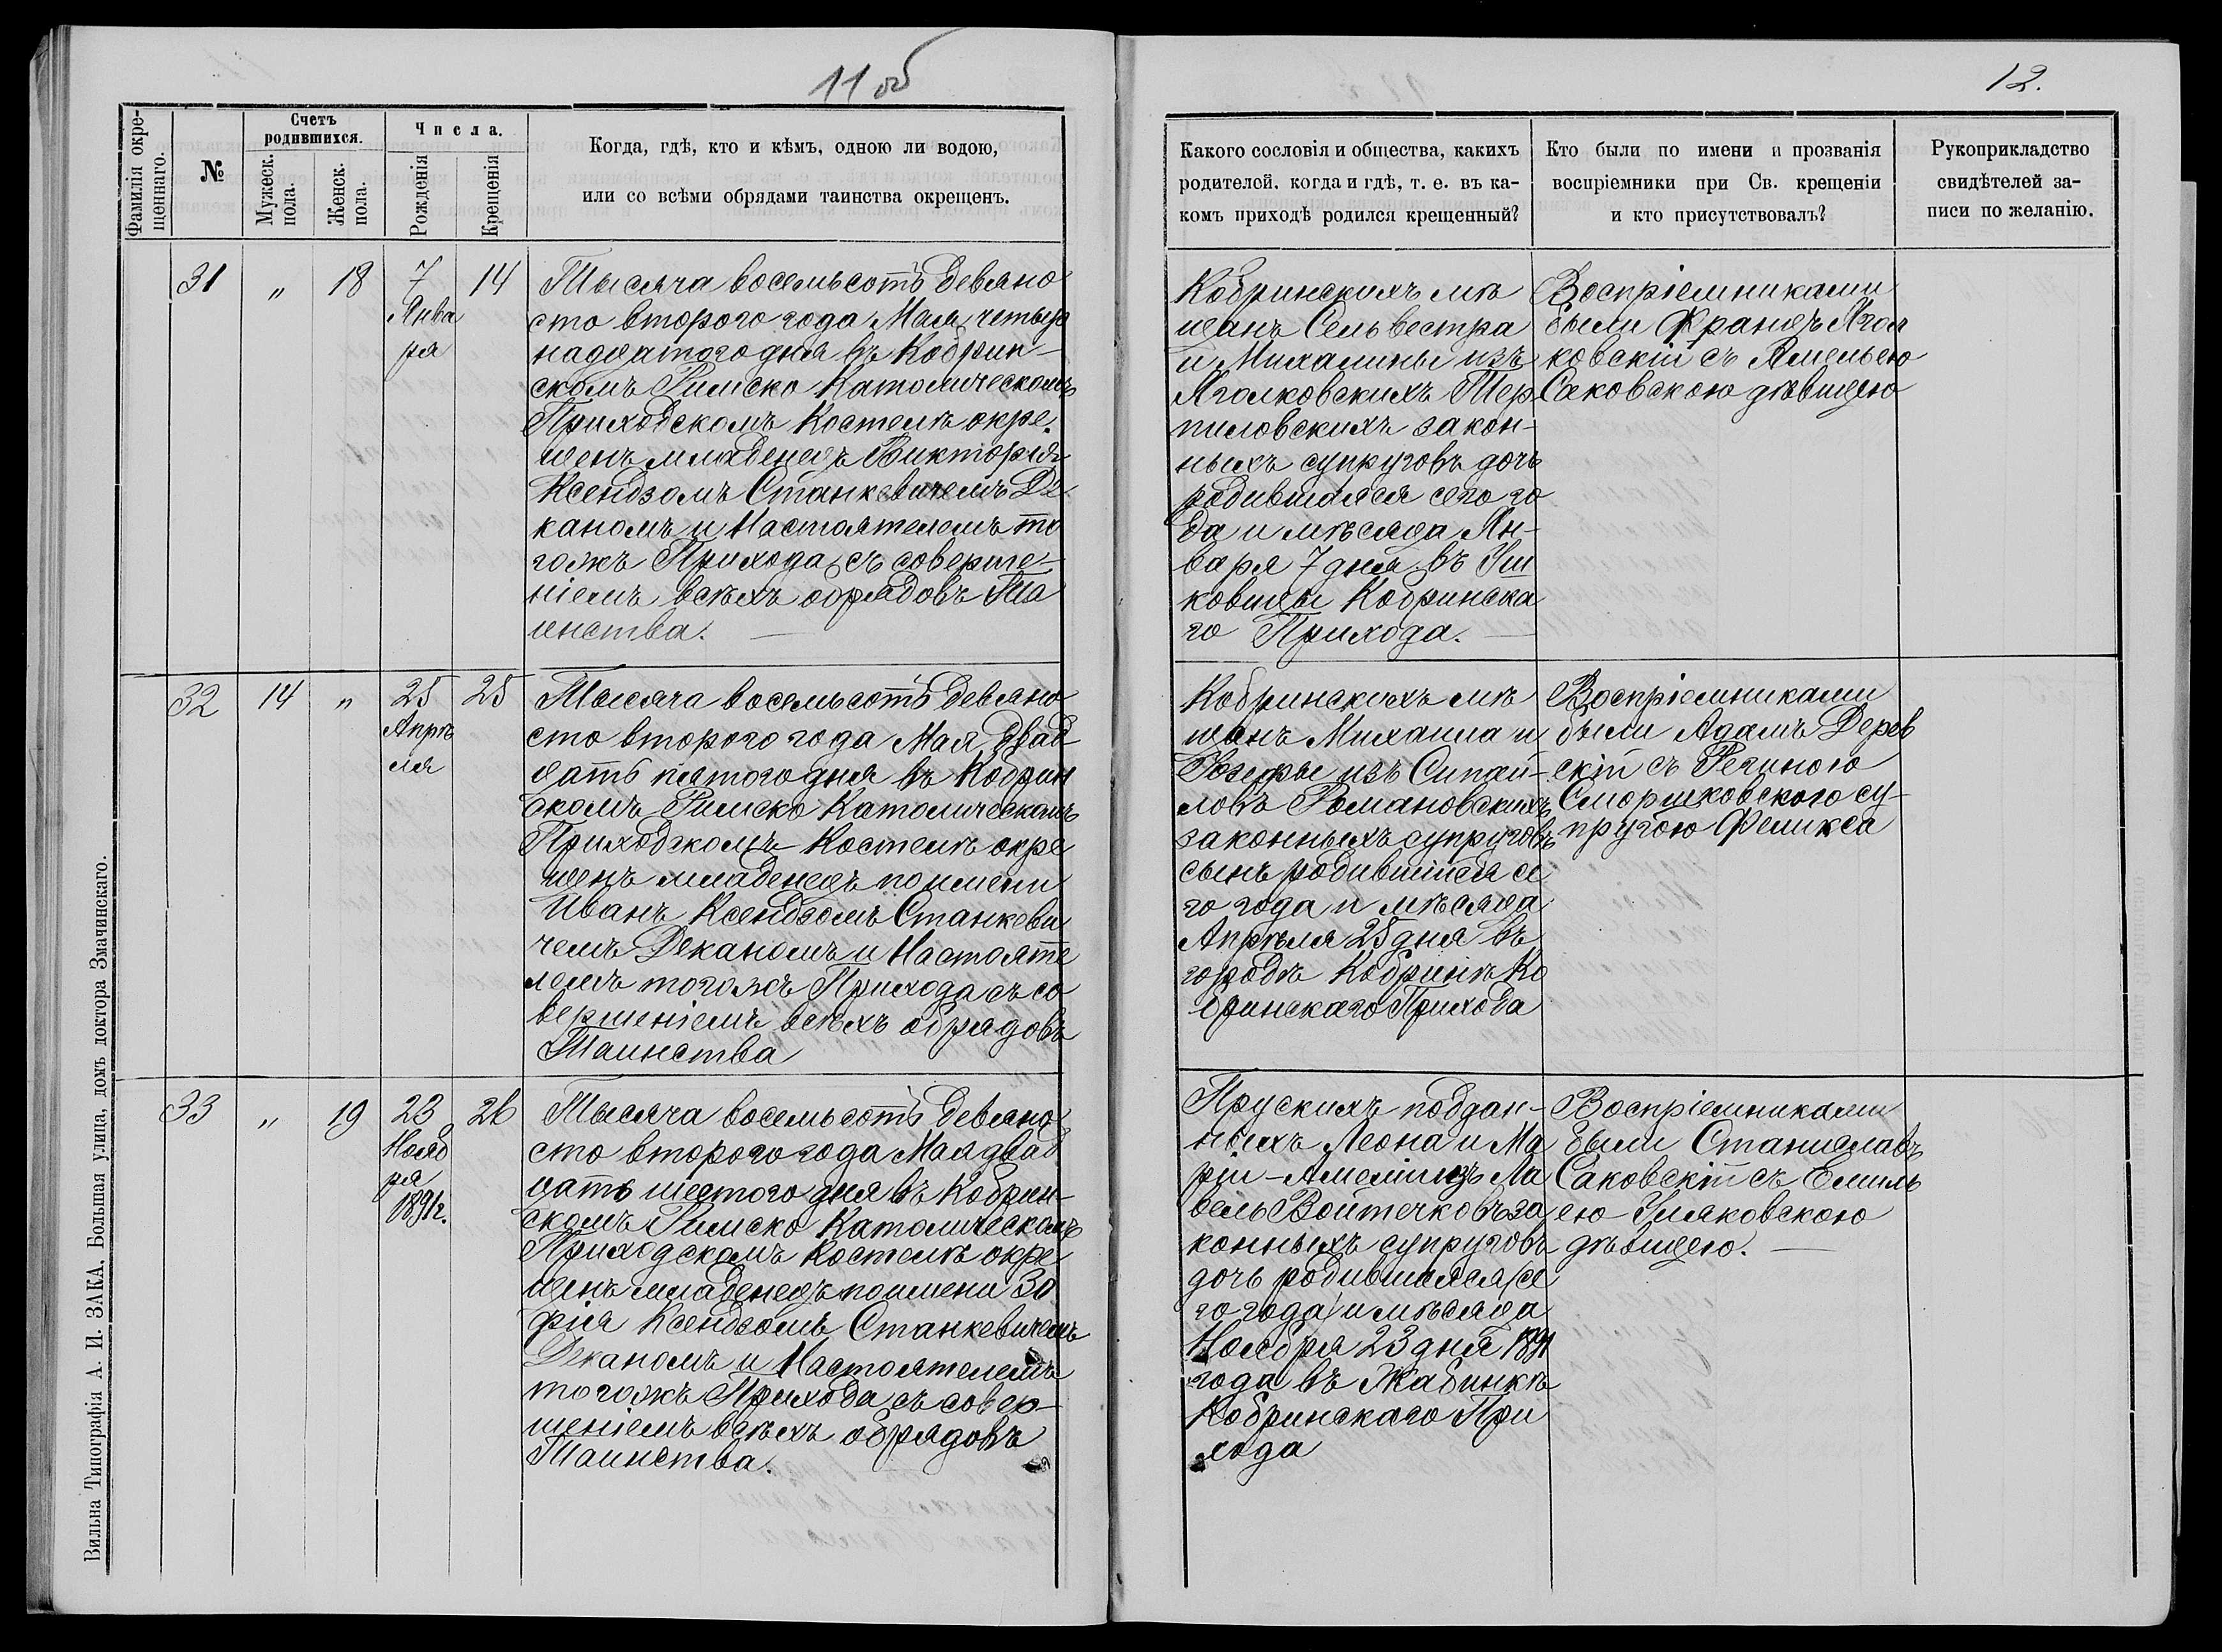 11 об
12.
Фамилія окре-
щеннаго.
№
Счетъ
родившихся.
Мужеск.
пола.
Женск.
пола.
Числа.
Рожденія
Крещенія
Когда, гдѣ, кто и кѣмъ, одною ли водою,
или со всѣми обрядами таинства окрещенъ.
Какого сословія и общества, какихъ
родителей, когда и гдѣ, т. е. въ ка-
комъ приходѣ родился крещенный?
Кто были по имени и прозванія
воспріемники при Св. крещеніи
и кто присутствовалъ?
Рукоприкладство
свидѣтелей за-
писи по желанію.
31
"
18
7
Янва
ря
14
Тысяча восемьсотъ девяно
сто второго года Мая четыр
надцатого дня въ Кобрин-
скомъ Римско Католическомъ
Приходскомъ Костелѣ окре
щенъ младенецъ Викторія
Ксендзомъ Станкевичемъ Де
каномъ и Настоятелемъ то
гожъ Прихода, съ соверше-
ніемъ всѣхъ обрядовъ Та
инства.
Кобринскихъ мѣ
щанъ Сельвестра
и Михалины изъ
Яголковскихъ Тер
пиловскихъ закон-
ныхъ супруговъ дочь
родившаяся сего го
да и мѣсяца Ян-
варя 7 дня въ
ковицы Кобринска
го Прихода.
Воспріемниками
были Францъ Ягол
ковскій съ Амельею
Саковскою дѣвицею
32
14
"
25
Апрѣ
ля
25
Тысяча восемьсотъ девяно
сто второго года Мая двад
цать пятого дня въ Кобрин
скомъ Римско Католическомъ
Приходскомъ Костелѣ окре
щенъ младенецъ по имени
Иванъ Ксендзомъ Станкеви
чемъ Деканомъ и Настояте
лемъ тогожъ Прихода съ со
вершеніемъ всѣхъ обрядовъ
Таинства
Кобринскихъ мѣ
щанъ Михаила и
Іозефы изъ Сипай-
ловъ Романовскихъ
законныхъ супруговъ
сынъ родившійся се
го года и мѣсяца
Апрѣля 25 дня въ
городѣ Кобринѣ Ко
бринскаго Прихода
Воспріемниками
были Адамъ Дерев
скій съ Региною
Сморшковского су-
пругою Феликса
33
"
19
23
Нояб
ря
1891г.
26
Тысяча восемьсотъ девяно
сто второго года Мая двад
цать шестого дня въ Кобрин-
скомъ Римско Католическомъ
Приходскомъ Костелѣ окре
щенъ младенецъ по имени Зо
фія Ксендзомъ Станкевичемъ
Деканомъ и Настоятелемъ
тогожъ Прихода съ совер-
шеніемъ всѣхъ обрядовъ
Таинства.
Прускихъ поддан-
ныхъ Леона и Ма
ріи-Амеліи изъ Ла
вель Войтечковъ за
конныхъ супруговъ
дочь родившаяся (се
го года) и мѣсяца
Ноября 23 дня 1891
года въ Жабинкѣ
Кобринскаго При
хода
Воспріемниками
были Станиславъ
Саковскій съ Емиль
ею
дѣвицею.
Вильна Типографія А. И. ЗАКА, Большая улица, домъ доктора Змачинскаго.